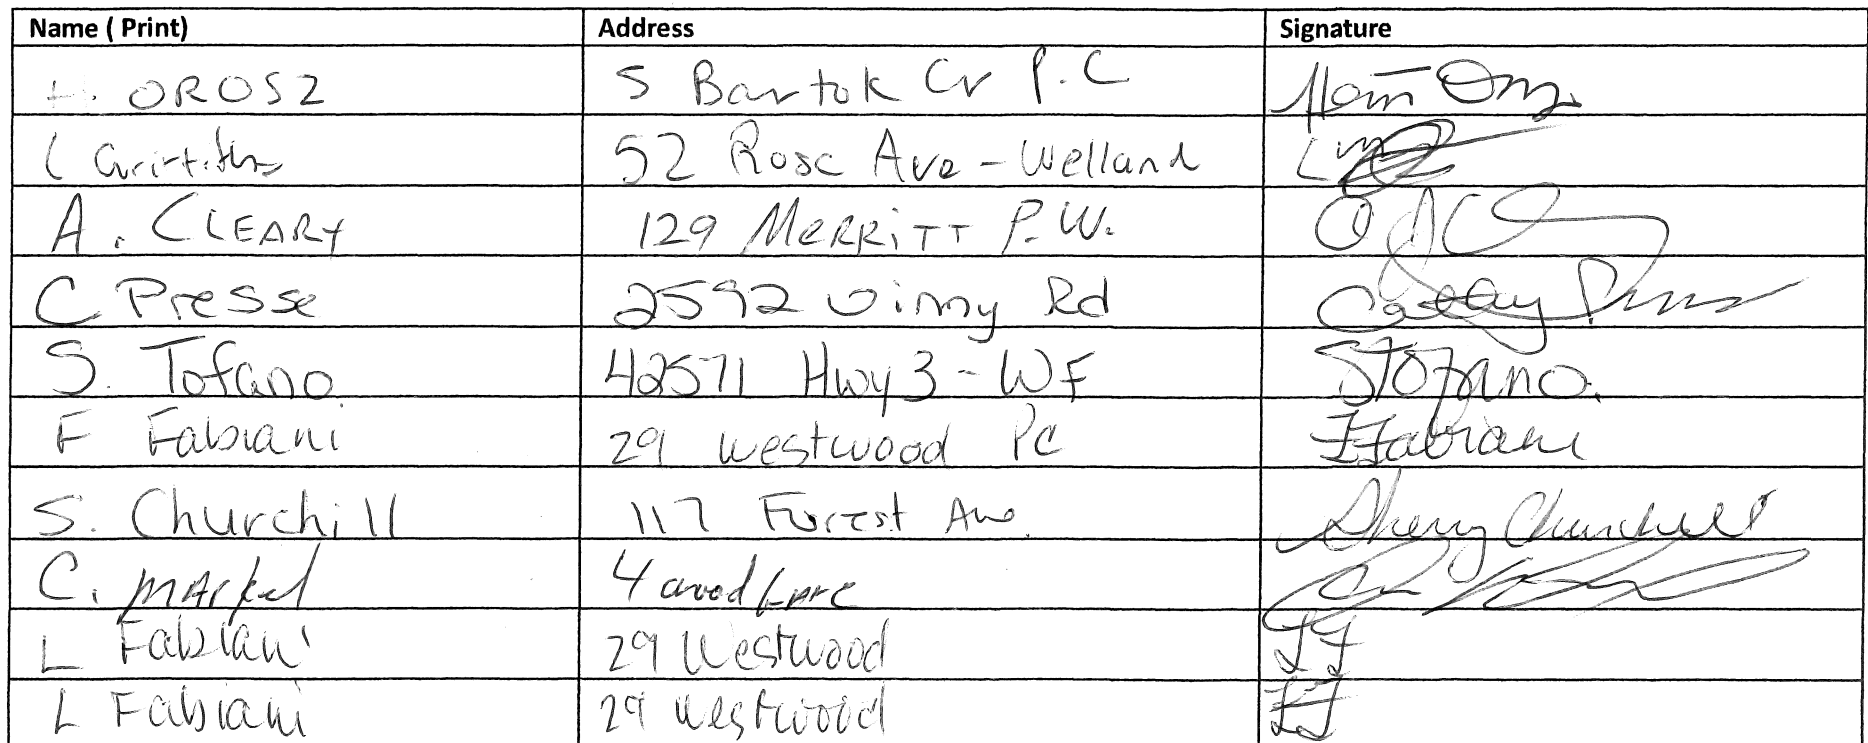 Name ( Print) Address Signature
H. OROSZ 5 Bartok Cr P.C
L Griffiths 52 Rose Ave - Welland
A. CLEARY 129 MERRITT P.W.
C Presse 2592 Vimy Rd Cathy Presse
S. Tofano 42571 Hwy 3 - WF STofano.
F Fabiani 29 Westwood PC F Fabiani
S. Churchill 117 Forest Ave. Sherry Churchill
C. MARKel 4 wood LANE
L Fabiani 29 Westwood LF
L Fabiani 29 Westwood LF